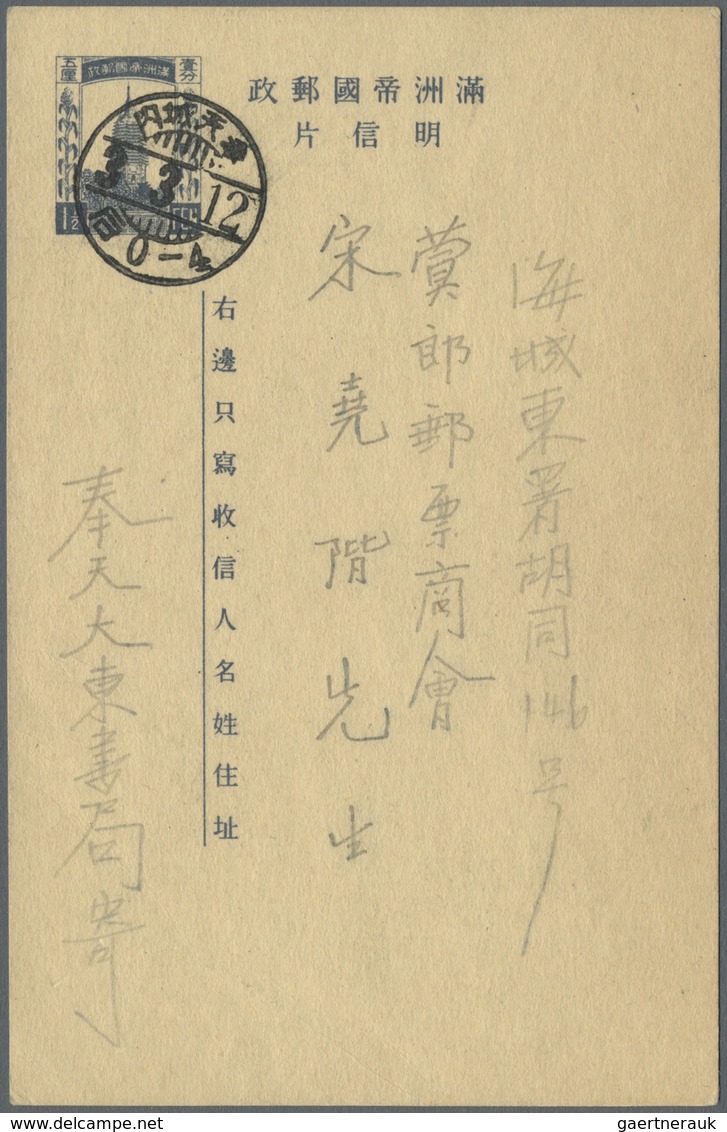 政郵國帝洲滿
片信明
五厘
政郵國帝洲滿
壹分
1½
內城天奉
3 3 12
后
0-4
海城東署胡同146号
蓂郎郵票商會
宋堯階先生
右邊只寫收信人名姓住址
奉天大東書局寄
gaertnerauk